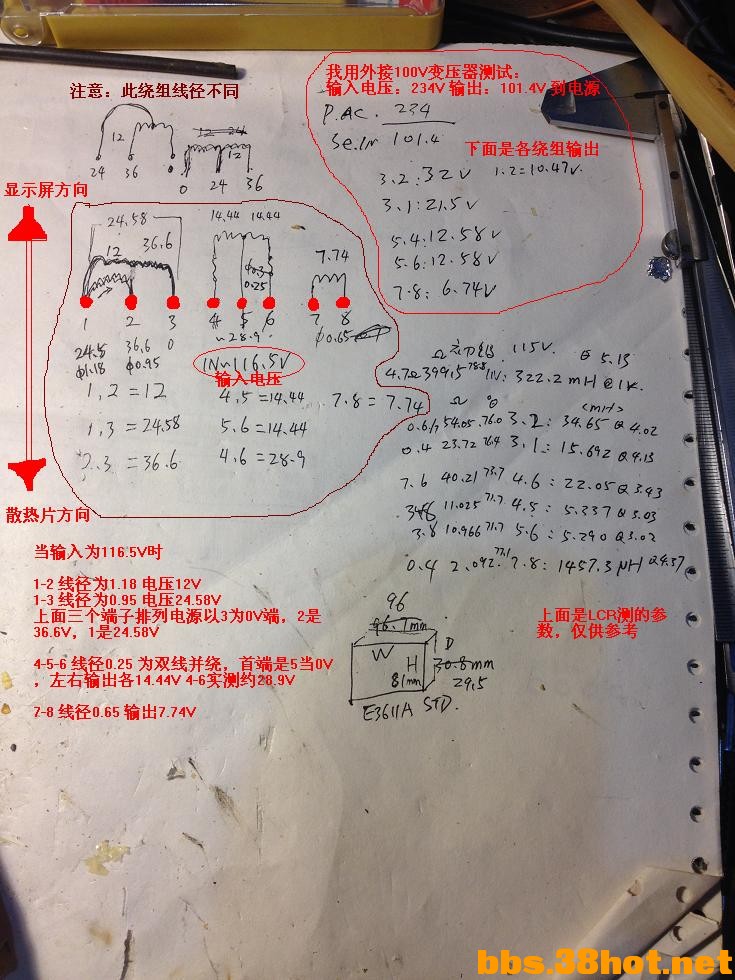 注意：此绕组线径不同
12
24 36 0
12 24
12
0 24 36
我用外接100V变压器测试：
输入电压：234V 输出：101.4V 到电源
P.AC. 234
Se.In 101.4
下面是各绕组输出
3.2：32V 1.2=10.47V.
3.1：21.5V
5.4：12.58V
5.6：12.58V
7.8：6.74V
显示屏方向
24.58
12 36.6
14.44 14.44
0.25
7.74
1 2 3 4 5 6 7 8
24.5 36.6 0
φ1.18 φ0.95
~28.9
φ0.65
IN~116.5V
输入电压
1,2=12 4,5=14.44 7.8=7.74
1,3=24.58 5.6=14.44
2.3=36.6 4,6=28.9
115V. Q 5.13
322.2 mH @1K.
Ω θ <mH>
54.05 76.0 3.2：34.65 Q 4.02
0.4 23.72 76.4 3.1：15.692 Q 4.13
7.6 40.21 73.7 4.6：22.05 Q 3.43
11.025 71.7 4.5：5.337 Q 3.03
3.8 10.966 71.7 5.6：5.290 Q 3.02
0.4 2.092 77.1 7.8：1457.3 μH Q 4.37
散热片方向
当输入为116.5V时
1-2 线径为1.18 电压12V
1-3 线径为0.95 电压24.58V
上面三个端子排列电源以3为0V端，2是
36.6V，1是24.58V
4-5-6 线径0.25 为双线并绕，首端是5当0V
，左右输出各14.44V 4-6实测约28.9V
7-8 线径0.65 输出7.74V
上面是LCR测的参
数，仅供参考
96
96.7mm
W H D
30.8mm
81mm 29.5
E3611A STD.
bbs.38hot.net